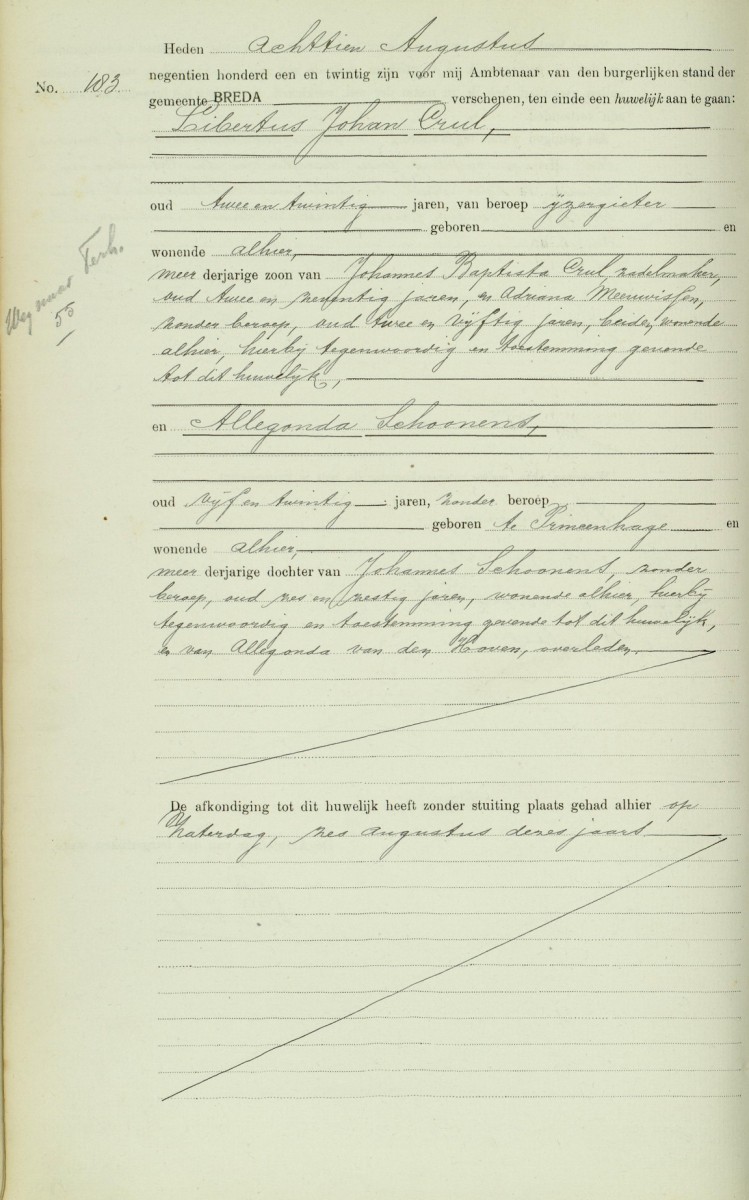 Heden achttien Augustus
No. 183
negentien honderd een en twintig zijn voor mij Ambtenaar van den burgerlijken stand der
gemeente BREDA verschenen, ten einde een huwelijk aan te gaan:
Libertus Johan Crul,
oud twee en twintig jaren, van beroep ijzergieter
geboren en
wonende alhier,
meer derjarige zoon van Johannes Baptista Crul, zadelmaker,
oud twee en zeventig jaren, en Adriana Meeuwissen,
zonder beroep, oud twee en vijftig jaren, beiden wonende
alhier, hierbij tegenwoordig en toestemming gevende
tot dit huwelijk,
Weg naar Terh.
55
en Allegonda Schoonens,
oud vijf en twintig jaren, zonder beroep
geboren te Princenhage en
wonende alhier,
meer derjarige dochter van Johannes Schoonens, zonder
beroep, oud zes en zestig jaren, wonende alhier, hierbij
tegenwoordig en toestemming gevende tot dit huwelijk,
en van Allegonda van den Hoven, overleden.
De afkondiging tot dit huwelijk heeft zonder stuiting plaats gehad alhier op
Zaterdag, zes Augustus dezes jaars